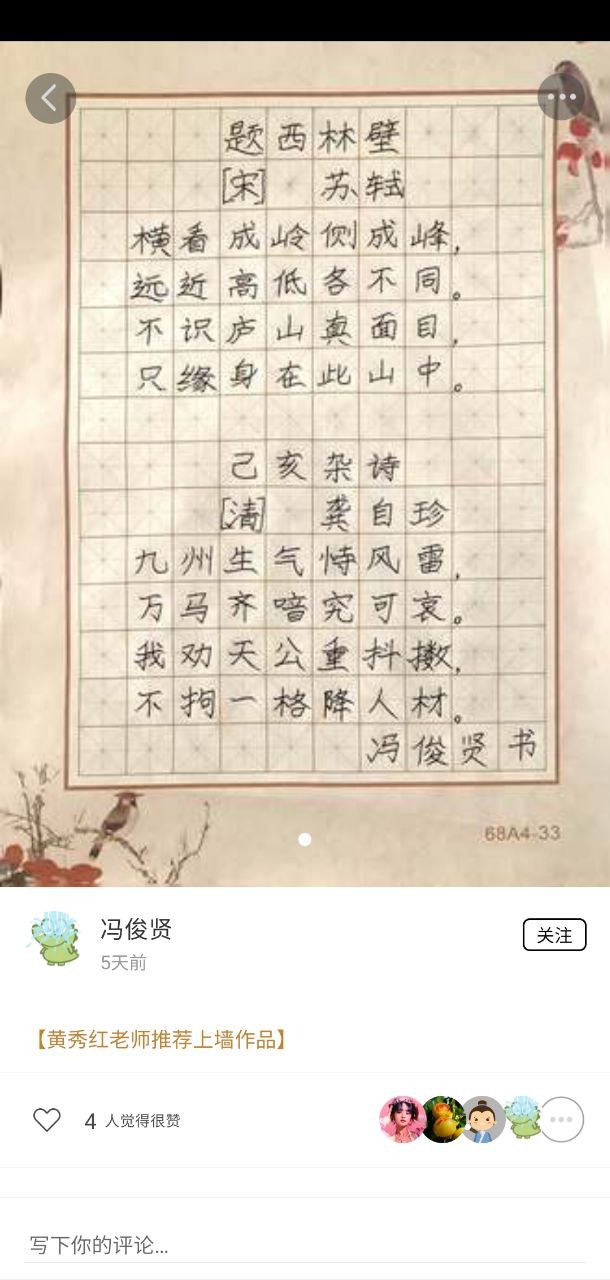 题西林壁
[宋] 苏轼
横看成岭侧成峰，
远近高低各不同。
不识庐山真面目，
只缘身在此山中。
己亥杂诗
[清] 龚自珍
九州生气恃风雷，
万马齐喑究可哀。
我劝天公重抖擞，
不拘一格降人材。
冯俊贤书
68A4-33
冯俊贤
关注
5天前
【黄秀红老师推荐上墙作品】
4 人觉得很赞
写下你的评论...